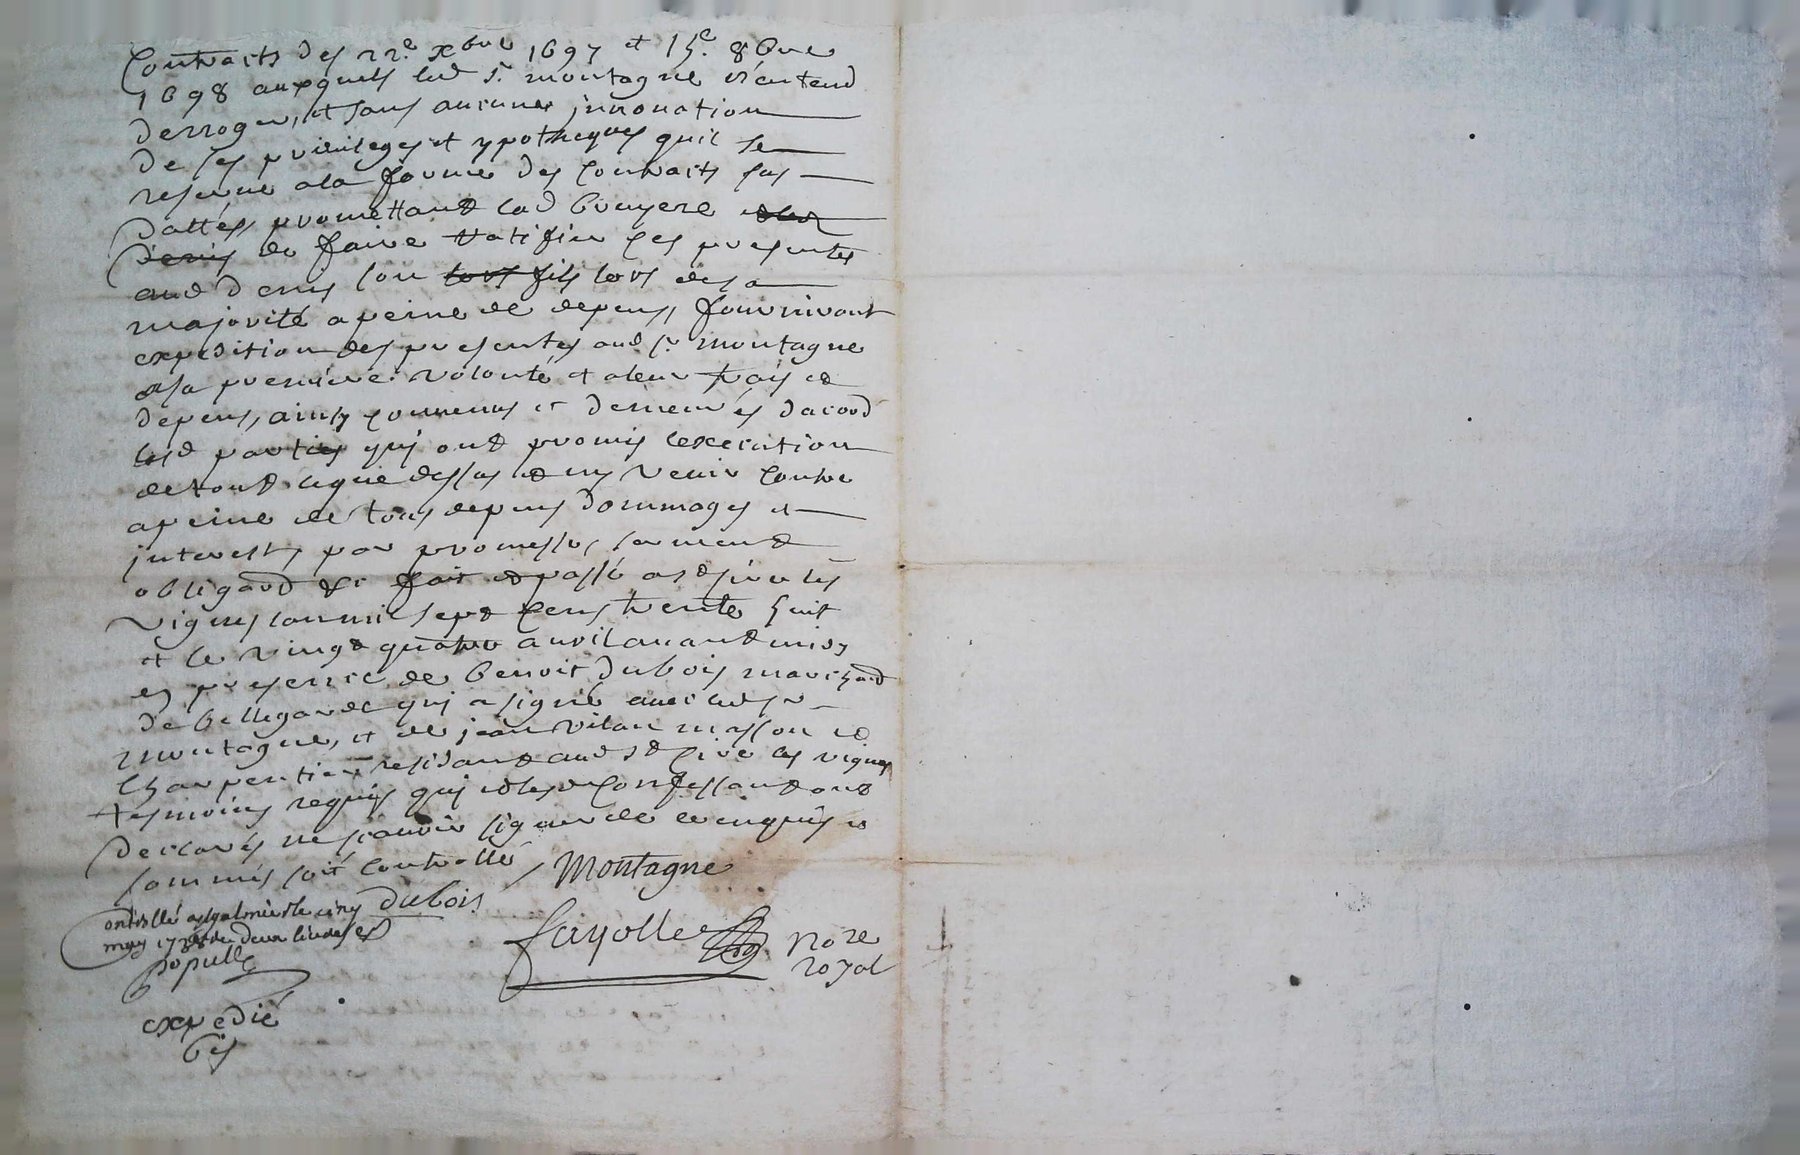 Contracts des 22e. xbre 1697 et 15e. 8bre
1698 auxquels led sr. montagne n'entend
derroger, et sans aucune jnnovation
de ses privileges et ypotheques quil se
reserve ala forme des contracts sus
dattés, promettant lad bruyere
denis de faire ratifier ces presentes
aud denis son tors fils lors desa
majorité apeine de depens, fourniront
expedition des presentes aud sr montagne
asa premiere volonté et aleur frais et
depens, ainsy convenus et demeurés dacord
lesd parties qui ont promis lexecution
detout ceque dessus et ny venir contre
apeine de tous depens dommages et
interests par promesse, serment
obligaõn &c fait et passé a st sire les
vignes lan mil sept cens trente huit
et le vingt quatre avril avant midy
en presence de benoit dubois marchand
de bellegarde qui a signé avec led sr
montagne, et de jean vilan masson et
charpentier residant aud st cire les vignes
tesmoins requis qui et lesd confessant ont
declarés ne scavoir signer de ce enquis et
sommés soit controllé
Montagne
dubois
ontrollé a st galmier le cinq
may 1738 deux livres
populle
fayolle nore
royal
expedié
bis